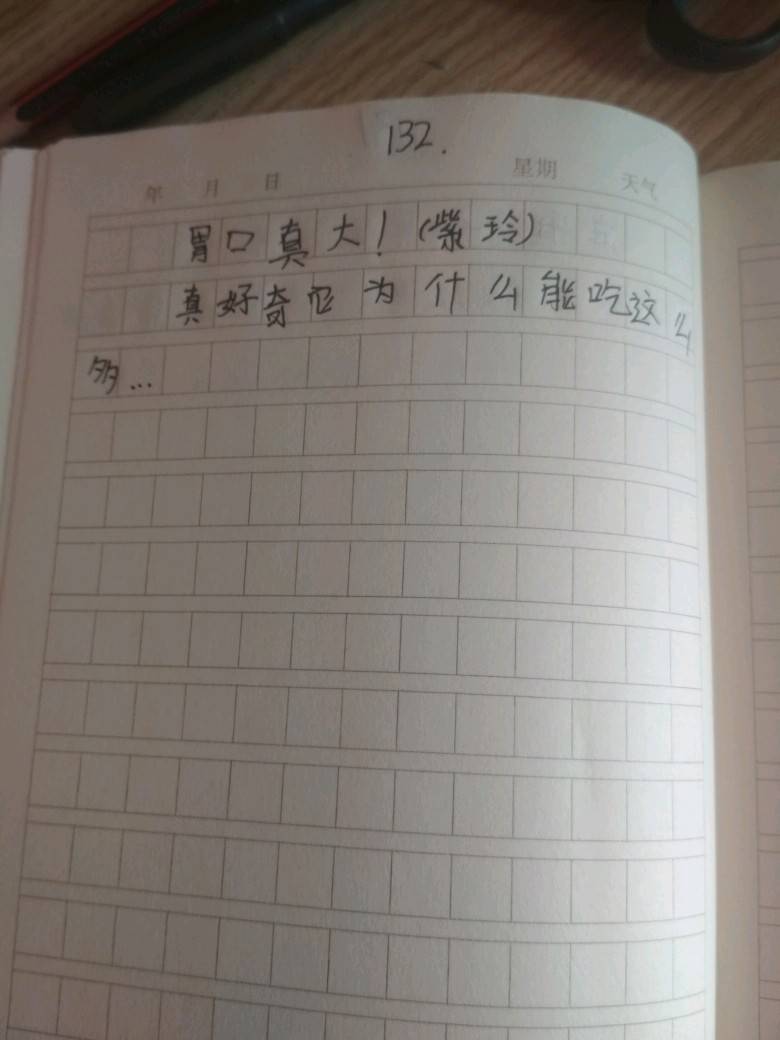 132.
年 月 日 星期 天气
胃口真大！(紫玲)
真好奇它为什么能吃这么
多...